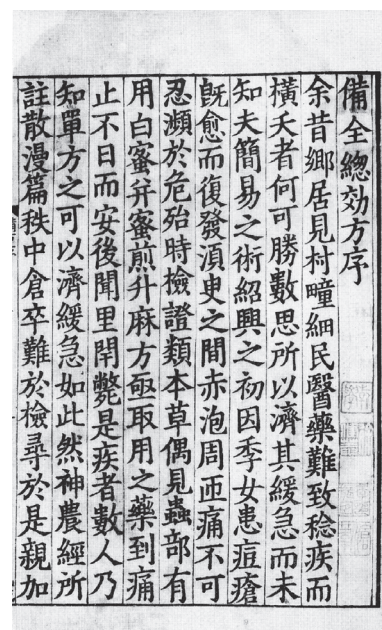 備全總効方序
余昔鄉居見村疃細民醫藥難致稔疾而
橫夭者何可勝數思所以濟其緩急而未
知夫簡易之術紹興之初因季女患痘瘡
旣愈而復發湏臾之間赤泡周匝痛不可
忍瀕於危殆時檢證類本草偶見蟲部有
用白蜜并蜜煎升麻方亟取用之藥到痛
止不日而安後聞里閈斃是疾者數人乃
知單方之可以濟緩急如此然神農經所
註散漫篇秩中倉卒難於檢尋於是親加